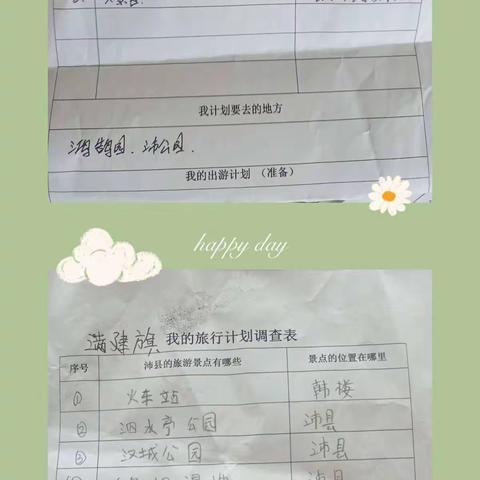 我计划要去的地方
沛公园.
我的出游计划 (准备)
happy day
满建旗 我的旅行计划调查表
序号 沛县的旅游景点有哪些 景点的位置在哪里
① 火车站 韩楼
② 泗水亭公园 沛县
③ 汉城公园 沛县
沛县